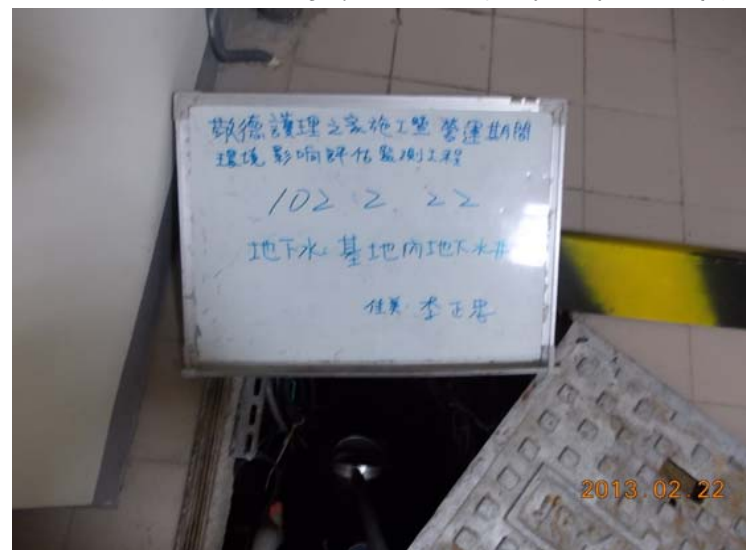 敬德護理之家施工暨營運期間
環境影响評估監測工程
102 2. 22
地下水: 基地內地下水井
佳美: 李正忠
2013.02.22